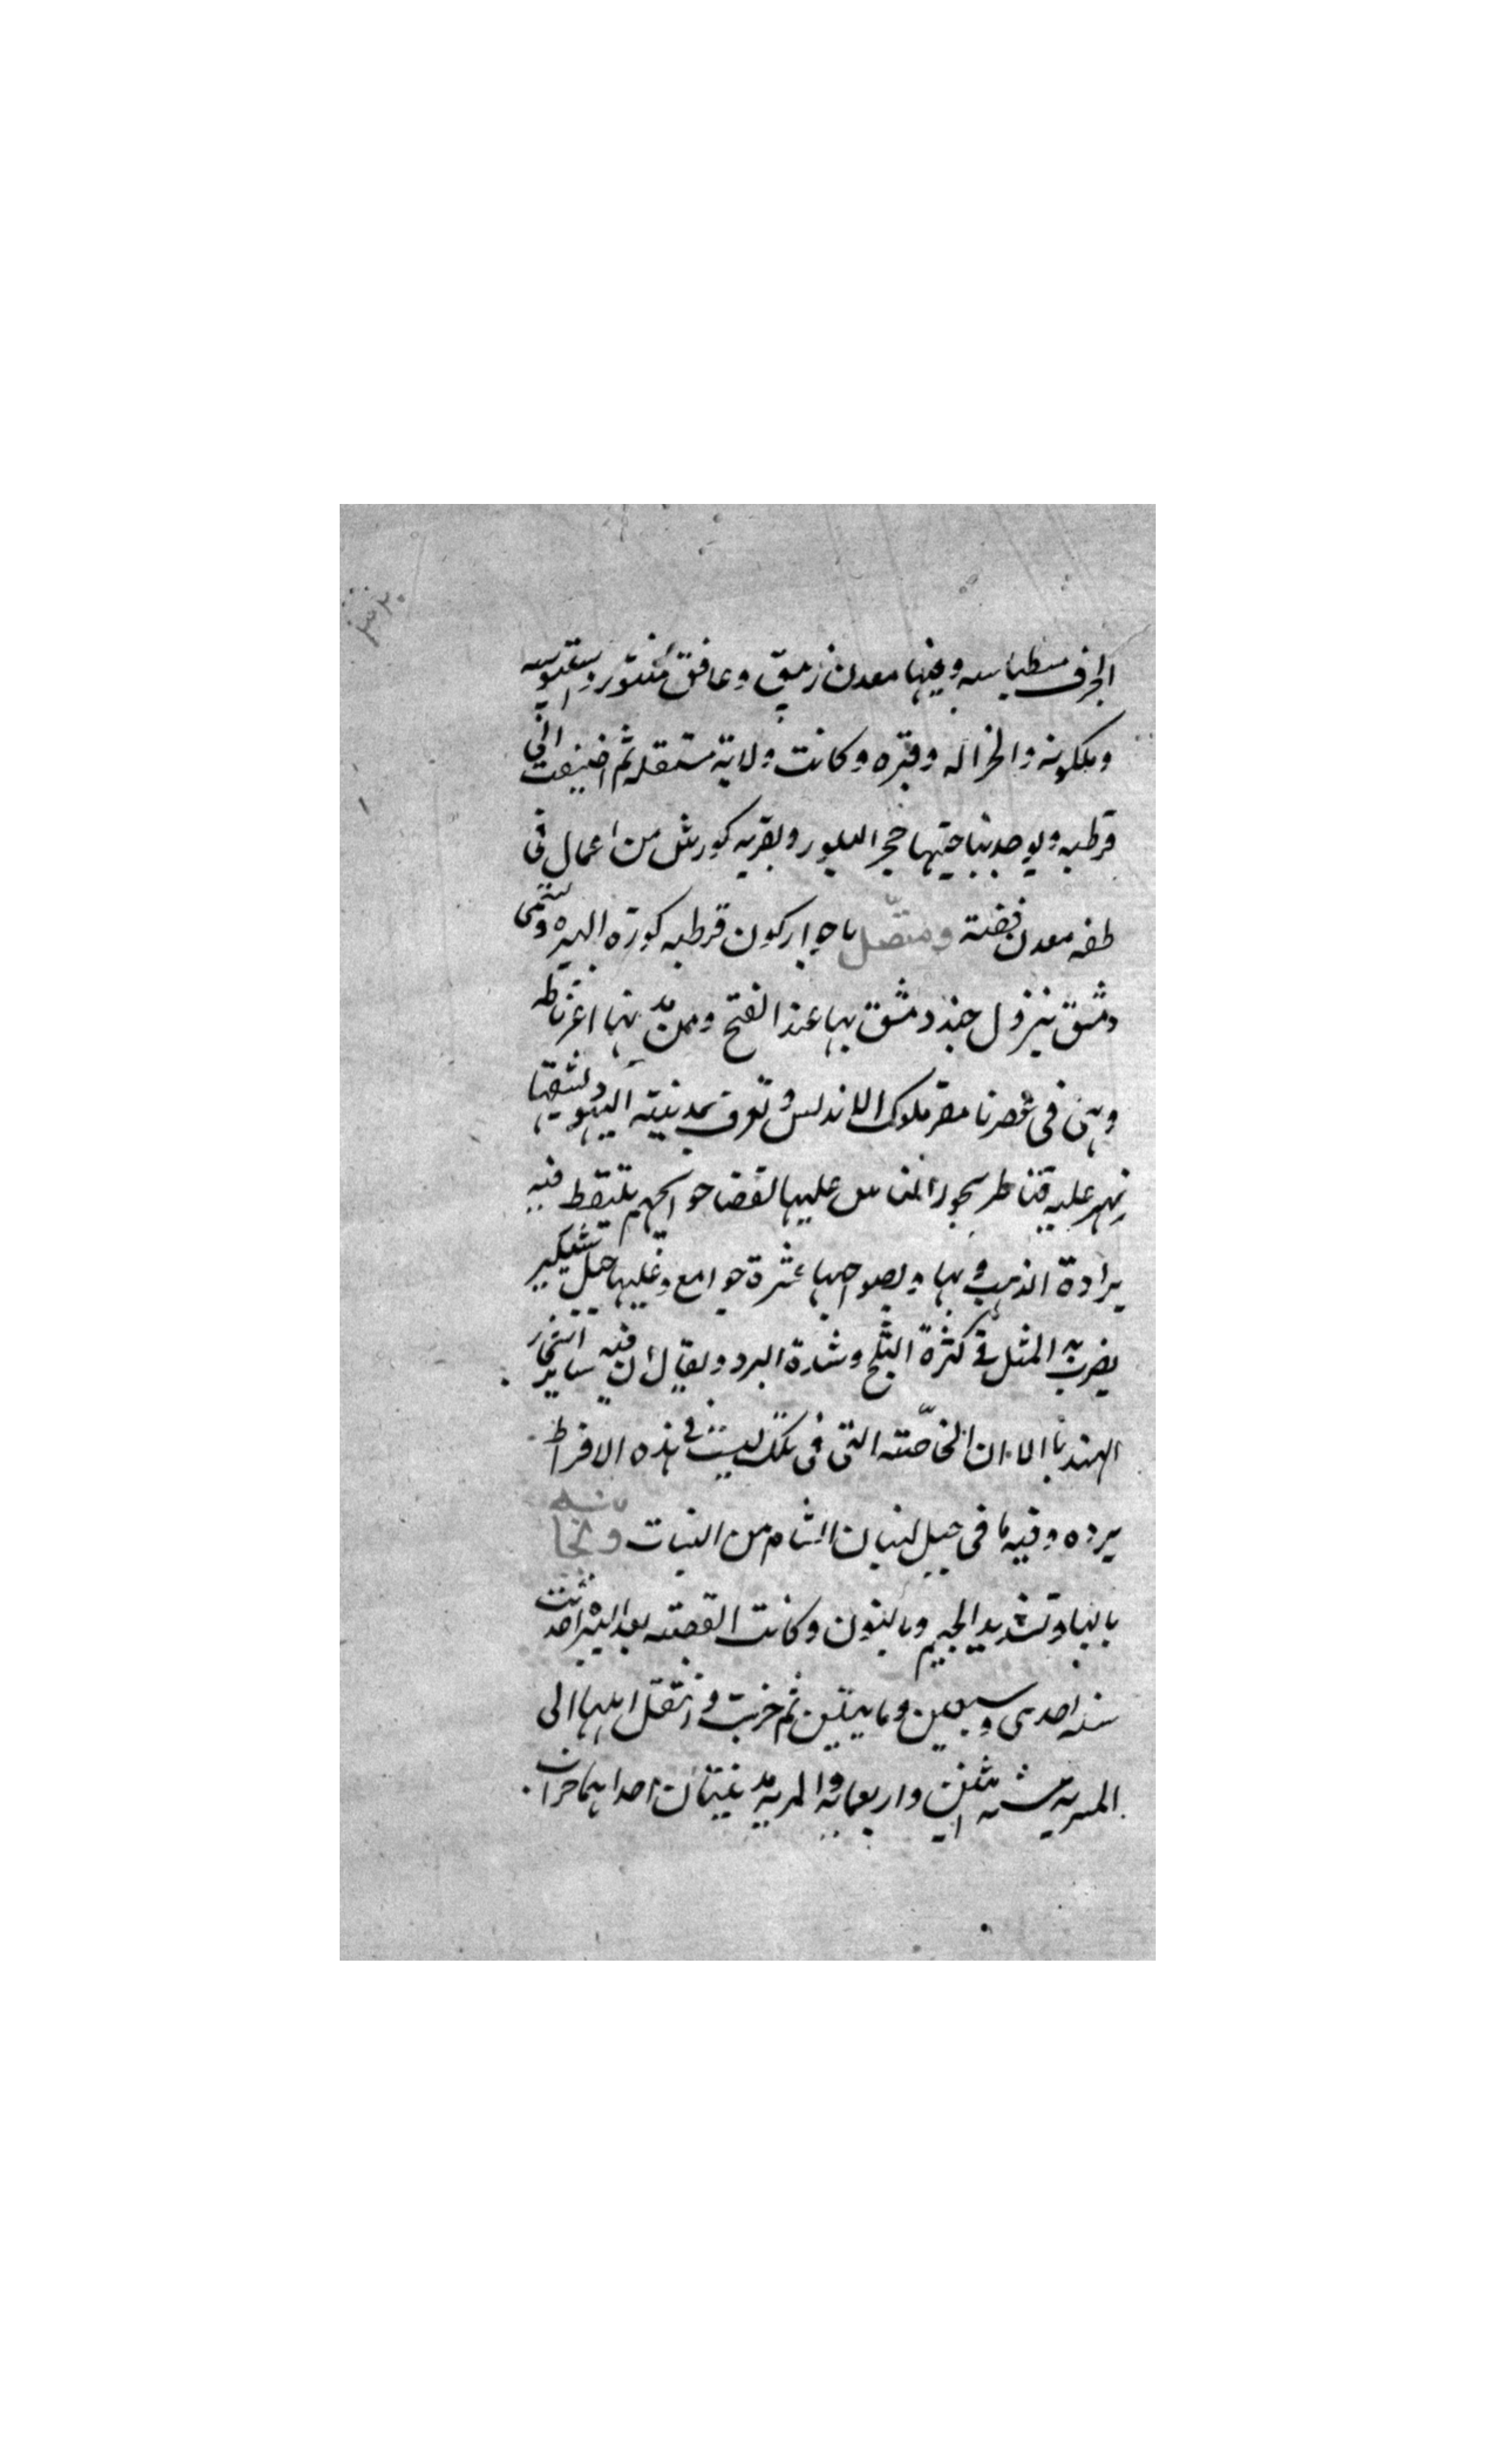 الجرف مسطباسه وفيها معدن زيبق وعافق منتور واستبوسه
وبلكونه والخزاله وقبره وكانت ولاية مستقله ثم اضيفت الى
قرطبه ويوجد بناحيتها حجر البلور وبقريه كورش من اعمال فى
طفه معدن فضة ومتصل باحواز كون قرطبه كورة البيره وتسمى
دمشق بنزول جند دمشق بها عند الفتح ومن مدنها اغرناطه
وهى فى عصرنا مقر ملوك الاندلس وتعرف بمدينة اليهود يشقها
نهر عليه قناطر يجوز الناس عليها لقضا حوايجهم يلتقط فيه
برادة الذهب وبها وبضواحيها عشرة جوامع وعليها جبل شكير
يضرب به المثل فى كثرة الثلج وشدة البرد ويقال ان فيه ساير اشجار
الهند يا الا ان الخاصته التى فى تلك ليست فى هذه الافراط
برده وفيه ما فى جبل لبنان الشام من النبات وبجانه
بالبا وتشديد الجيم وبالنون وكانت القصبة بعد البيره احدثت
سنه احدى وسبعين ومايتين ثم خربت وانتقل اهلها الى
المريه سنه اثنين واربعمايه والمريه مدينتان احداهما خراب